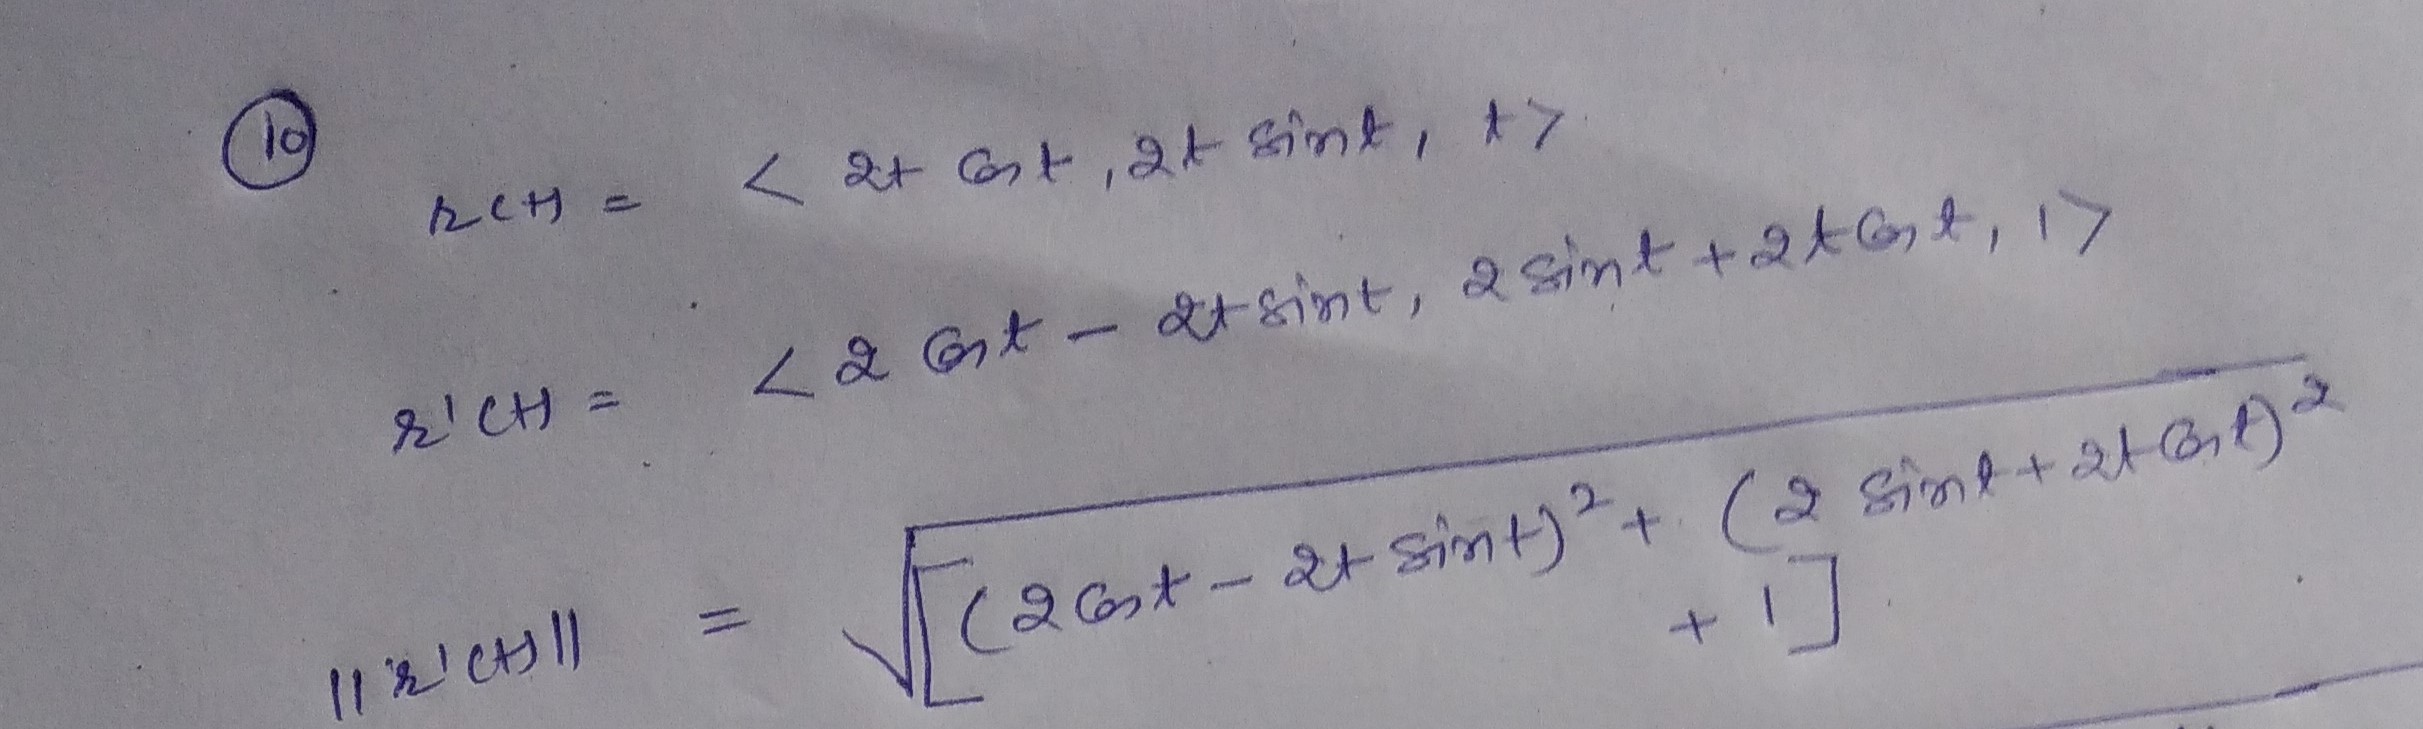 10
r(t) = < 2t cos t, 2t sin t, t >
r'(t) = < 2 cos t - 2t sin t, 2 sin t + 2t cos t, 1 >
||r'(t)|| = √[(2 cos t - 2t sin t)² + (2 sin t + 2t cos t)²
+ 1]